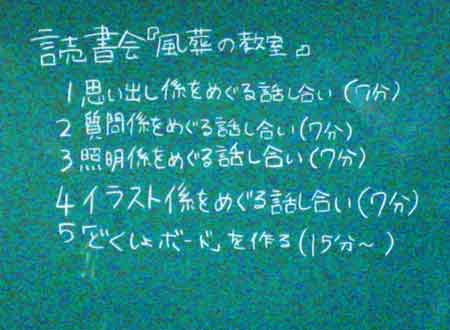 読書会『風葬の教室』
1 思い出し係をめぐる話し合い(7分)
2 質問係をめぐる話し合い(7分)
3 照明係をめぐる話し合い(7分)
4 イラスト係をめぐる話し合い(7分)
5 「どくしょボード」を作る(15分〜)